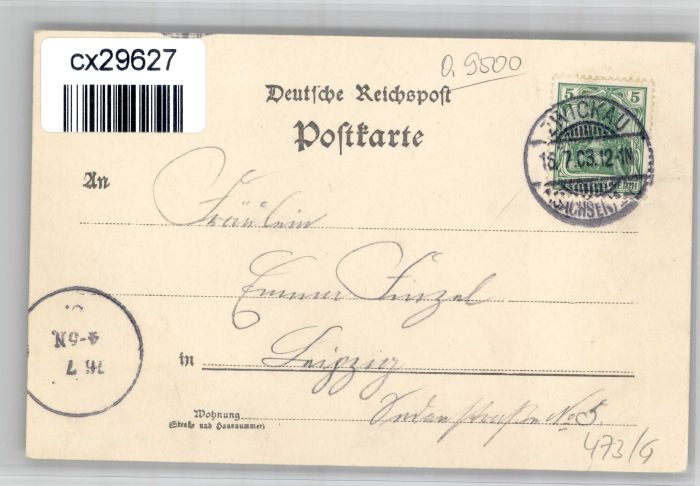 cx29627
0. 9500
Deutsche Reichspost
Postkarte
5 5
ZWICKAU
16.7.03.12-1N
(SACHSEN)
An
Fräulein
Emma Finzel
in Leipzig
Wohnung
(Straße und Hausnummer)
Sedanstraße No 5.
16.7
4-5N.
473/G